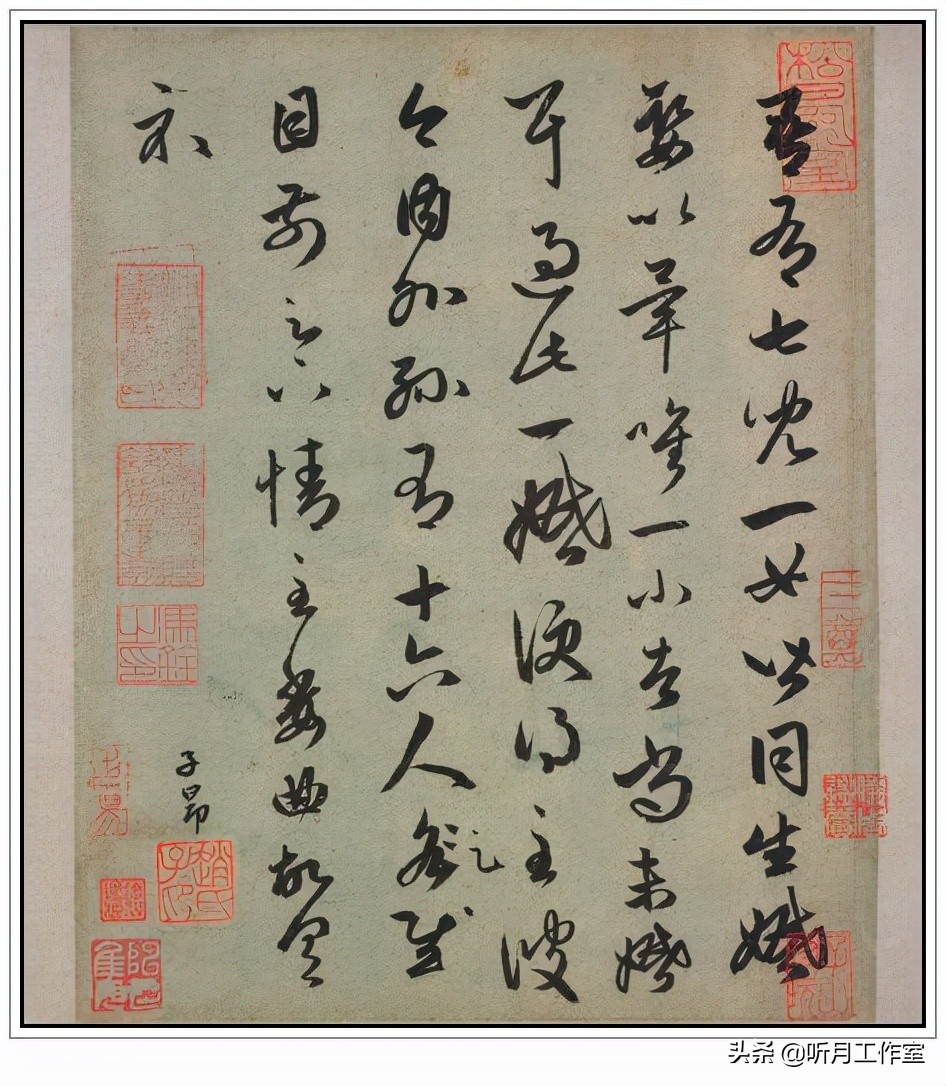 吾有七兒一女皆同生婚
娶以畢唯一小者尚未婚
耳過此一婚便得至彼
今內外孫有十六人足慰
目前足下情至委曲故具
示
子昂
頭条 @听月工作室